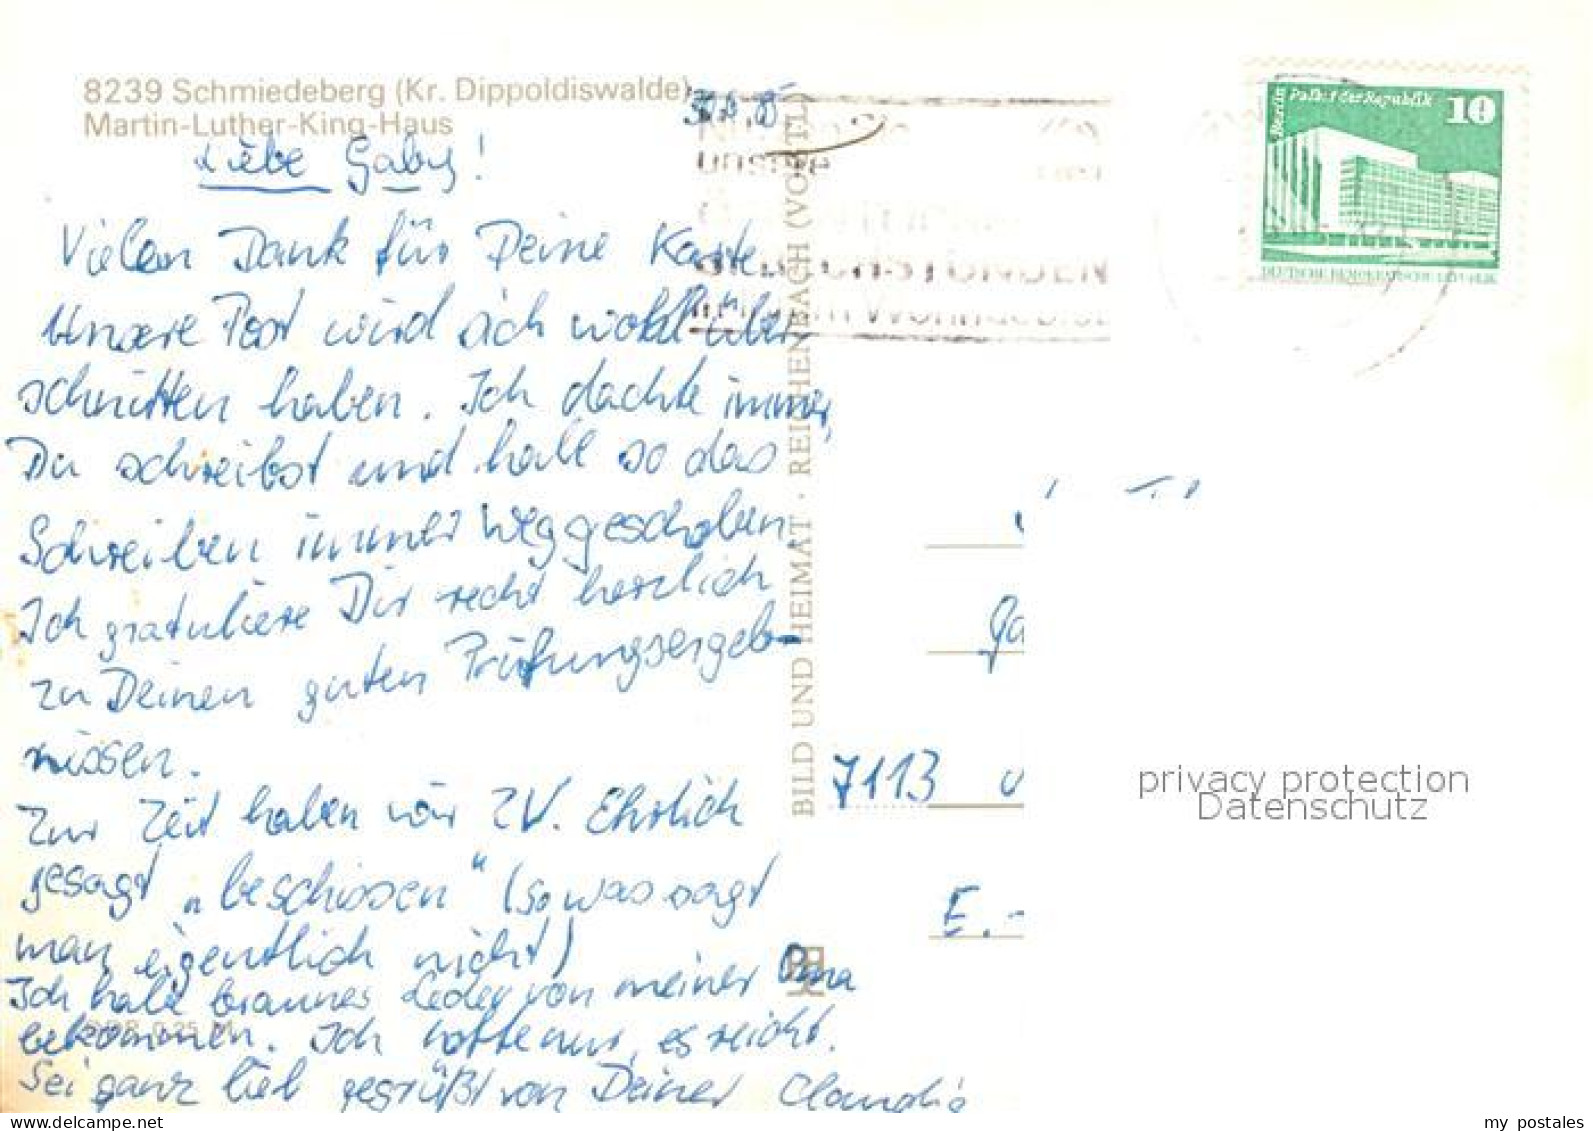 8239 Schmiedeberg (Kr. Dippoldiswalde)
Martin-Luther-King-Haus
Liebe Gaby!
Vielen Dank für Deine Karte.
Unsere Post wird sich wohl über
schnitten haben. Ich dachte immer,
Du schreibst und hab so das
Schreiben immer weggeschoben.
Ich gratuliere Dir recht herzlich
zu Deinen guten Prüfungsergeb-
nissen.
Zur Zeit haben wir ZV. Ehrlich
gesagt „beschissen“ (so was sagt
man eigentlich nicht)
Ich habe braunes Leder von meiner Oma
bekommen. Ich hoffe nur, es reicht.
Sei ganz lieb gegrüßt von Deiner Claudia
BILD UND HEIMAT · REICHENBACH (VOGTL)
unsere
STUNDEN
im Wohngebiet
Berlin
Palast der Republik
10
DEUTSCHE DEMOKRATISCHE REPUBLIK
Ga
7113
E.-
privacy protection
Datenschutz
my postales
www.delcampe.net